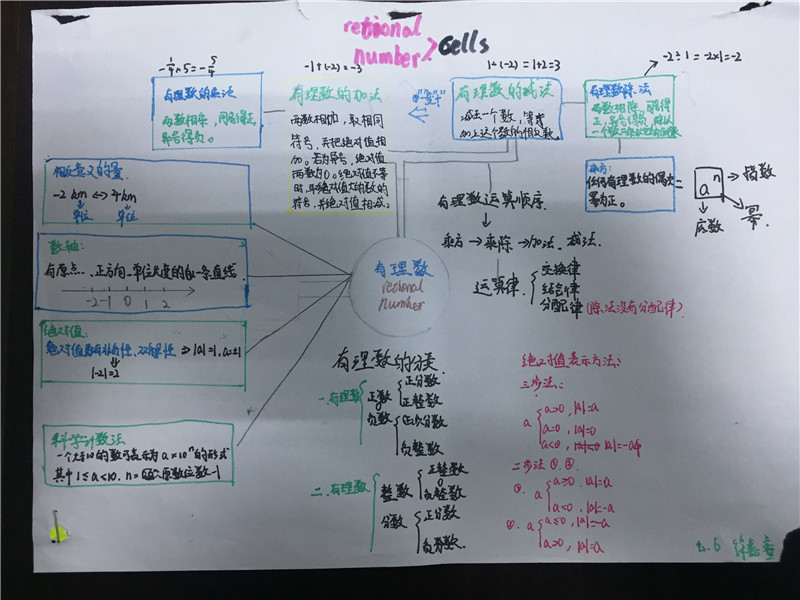 retional
number > Cells
-1/4 × 5 = -5/4
-1+(-2)=-3
1-(-2)=1+2=3
-2÷1=-2×1=-2
有理数的乘法
两数相乘，同号得正
异号得负。
有理数的加法
两数相加，取相同
符号，并把绝对值相
加。若为异号，绝对值
时，并绝对值大的数的
符号，并绝对值相减。
有理数的减法
减去一个数，等于
加上这个数的相反数
有理数除法
两数相除，同号得
正，异号得负，除以
乘方：
任何有理数的偶次
幂为正。
=
aⁿ
指数
底数
幂
相反意义的量
-2 km ↔ 4 km
单位 单位
数轴：
有原点、正方向、单位长度的一条直线
-2 -1 0 1 2
绝对值：
⇒ |a|=1, a=±1
|-2|=2
科学计数法
一个大于10的数可表示为a×10ⁿ的形式
其中1≤a<10, n=原数位数-1
有理数
retional
number
有理数运算顺序
乘方→乘除→加法、减法.
运算律
交换律
结合律
分配律(除法没有分配律)
有理数的分类
一.有理数
正数
正分数
正整数
0
负数
负分数
负整数
二.有理数
整数
正整数
0
负整数
分数
正分数
负分数.
绝对值表示方法：
三步法：
a
a>0, |a|=a
a=0, |a|=0
a<0, |a|=-a
二步法 ①.②.
①. a
a≥0, |a|=a
a<0, |a|=-a
②. a
a≤0, |a|=-a
a>0, |a|=a